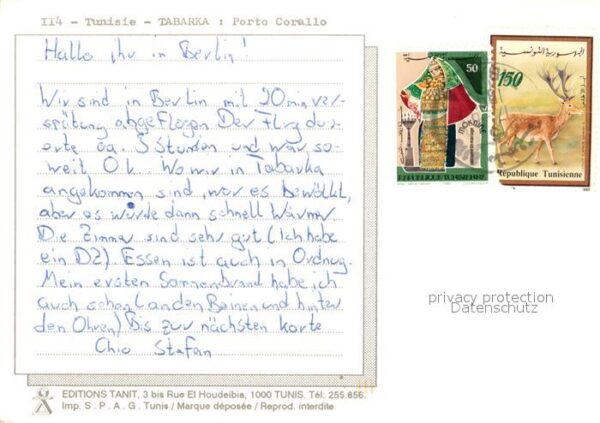 114 - Tunisie - TABARKA : Porto Corallo
Hallo ihr in Berlin!
Wir sind in Berlin mit 20min ver-
spätung abgeflogen. Der Flug dau-
erte ca. 3 Stunden und war so-
weit O.K. Wo wir in Tabarka
angekommen sind, war es bewölkt,
aber es würde dann schnell Wärmer
Die Zimmer sind sehr gut (Ich habe
ein DZ) Essen ist auch in Ordnug.
Mein ersten Sonnenbrand habe ich
auch schon (an den Beinen und hinter
den Ohren) Bis zur nächsten Karte
Chio Stefan
50
REPUBLIQUE TUNISIENNE
الجمهورية التونسية
150
République Tunisienne
privacy protection
Datenschutz
EDITIONS TANIT, 3 bis Rue El Houdeibia, 1000 TUNIS. Tél: 255.656.
Imp. S. P. A. G. Tunis / Marque déposée / Reprod. interdite